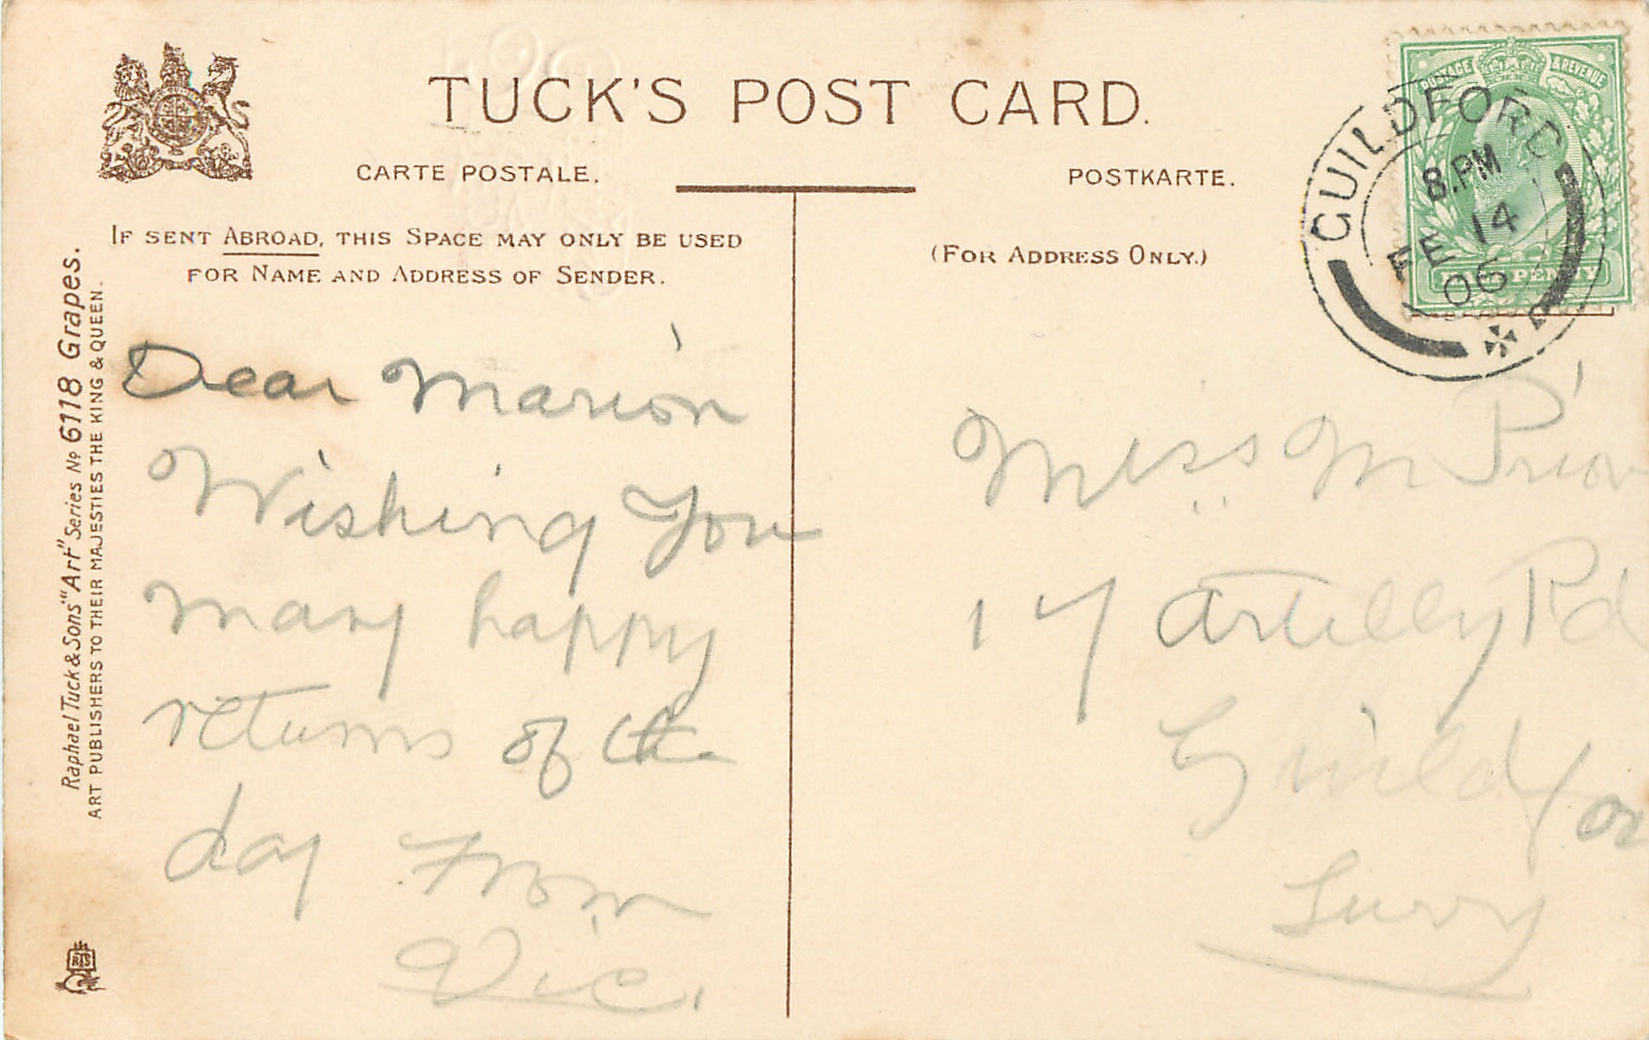 TUCK'S POST CARD.
CARTE POSTALE.
POSTKARTE.
IF SENT ABROAD, THIS SPACE MAY ONLY BE USED
FOR NAME AND ADDRESS OF SENDER.
(FOR ADDRESS ONLY.)
POSTAGE & REVENUE
HALFPENNY
GUILDFORD
8.PM
FE 14
06
Raphael Tuck & Sons' "Art" Series No 6118 Grapes.
ART PUBLISHERS TO THEIR MAJESTIES THE KING & QUEEN.
Dear Marion
Wishing You
many happy
returns of the
day From
Vic.
Miss M Prior
17 Artilley Rd
Guildfor
Surry
RTS